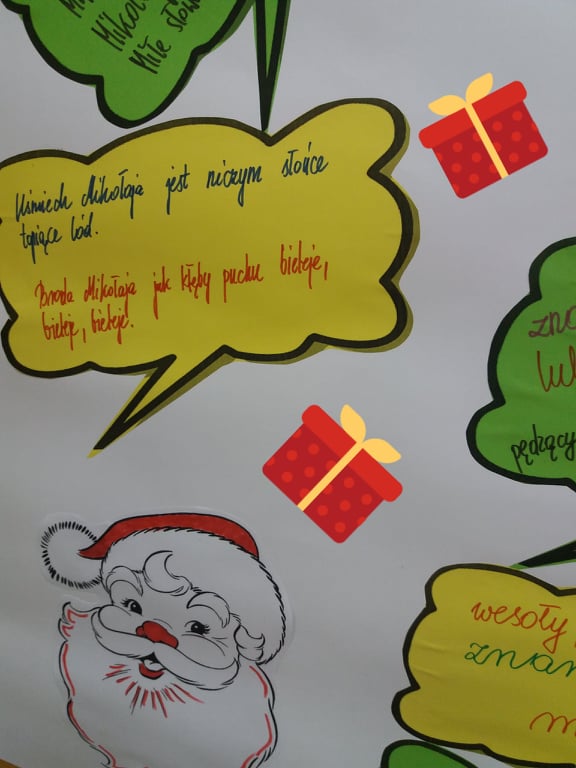 Miko
Miłe słow
Uśmiech Mikołaja jest niczym słońce
topiące lód.
Broda Mikołaja jak kłęby puchu bieleje,
bieleje, bieleje.
zna
lu
pędzący
wesoły
znan
m